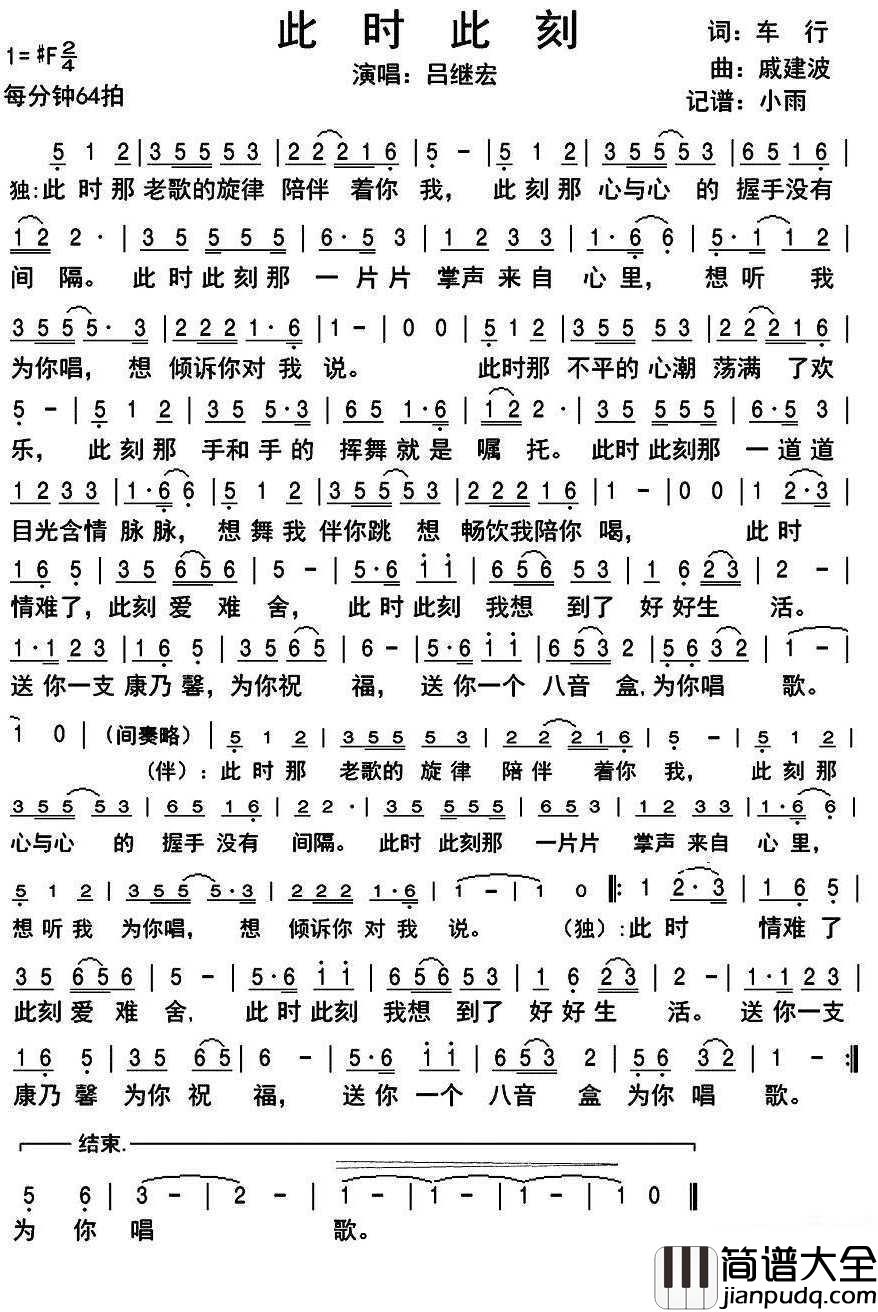 此 时 此 刻
词：车 行
1=#F 2/4
演唱：吕继宏
曲：戚建波
每分钟64拍
记谱：小雨
5̣ 1 2 | 3 5 5 5 5 3 | 2 2 2 1 6̣ | 5̣ - | 5̣ 1 2 | 3 5 5 5 3 | 6 5 1 6̣ |
独:此 时 那 老歌的旋律 陪伴 着你 我， 此刻那 心与心 的 握手没有
1 2 2 · | 3 5 5 5 5 | 6 · 5 3 | 1 2 3 3 | 1 · 6̣ 6̣ | 5̣ · 1 1 2 |
间 隔。 此 时 此 刻 那 一 片 片 掌声 来自 心 里， 想 听 我
3 5 5 5 · 3 | 2 2 2 1 · 6̣ | 1 - | 0 0 | 5̣ 1 2 | 3 5 5 5 3 | 2 2 2 1 6̣ |
为你唱， 想 倾诉你对 我 说。 此时那 不平的 心潮 荡满 了欢
5̣ - | 5̣ 1 2 | 3 5 5 · 3 | 6 5 1 · 6̣ | 1 2 2 · | 3 5 5 5 5 | 6 · 5 3 |
乐， 此 刻 那 手和 手 的 挥舞 就 是 嘱 托。 此时 此刻那 一 道道
1 2 3 3 | 1 · 6̣ 6̣ | 5̣ 1 2 | 3 5 5 5 3 | 2 2 2 1 6̣ | 1 - | 0 0 | 1 2 · 3 |
目光含情 脉 脉， 想 舞 我 伴你跳 想 畅饮我陪你 喝， 此 时
1 6̣ 5̣ | 3 5 6 5 6 | 5 - | 5 · 6 i i | 6 5 6 5 3 | 1 6̣ 2 3 | 2 - |
情难了，此刻 爱 难 舍， 此 时 此刻 我想 到了 好 好生 活。
1 · 1 2 3 | 1 6̣ 5̣ | 3 5 6 5 | 6 - | 5 · 6 i i | 6 5 3 2 | 5̣ 6̣ 3 2 | 1 - |
送 你一支 康乃 馨，为你祝 福， 送 你一个 八音 盒,为你唱 歌。
1 0 | （间奏略）| 5̣ 1 2 | 3 5 5 5 3 | 2 2 2 1 6̣ | 5̣ - | 5̣ 1 2 |
（伴）：此 时 那 老歌的 旋 律 陪 伴 着你 我， 此 刻 那
3 5 5 5 3 | 6 5 1 6̣ | 2 2 · | 3 5 5 5 5 | 6 5 3 | 1 2 3 3 | 1 · 6̣ 6̣ |
心与心 的 握手 没有 间隔。 此时 此刻那 一片片 掌声 来自 心 里，
5̣ 1 2 | 3 5 5 5 · 3 | 2 2 2 1 · 6̣ | 1 - | 1 0 ‖: 1 2 · 3 | 1 6̣ 5̣ |
想 听 我 为你唱， 想 倾诉你 对 我 说。 （独）：此 时 情难 了
3 5 6 5 6 | 5 - | 5 · 6 i i | 6 5 6 5 3 | 1 6̣ 2 3 | 2 - | 1 · 1 2 3 |
此刻 爱 难 舍， 此 时 此刻 我想 到了 好 好 生 活。 送 你一支
1 6̣ 5̣ | 3 5 6 5 | 6 - | 5 · 6 i i | 6 5 3 2 | 5̣ 6̣ 3 2 | 1 - :‖
康乃 馨 为你 祝 福， 送 你 一个 八音 盒 为你 唱 歌。
结束.
5̣ 6̣ | 3 - | 2 - | 1 - | 1 - | 1 - | 1 0 ‖
为 你 唱 歌。
简谱大全
jianpudq.com